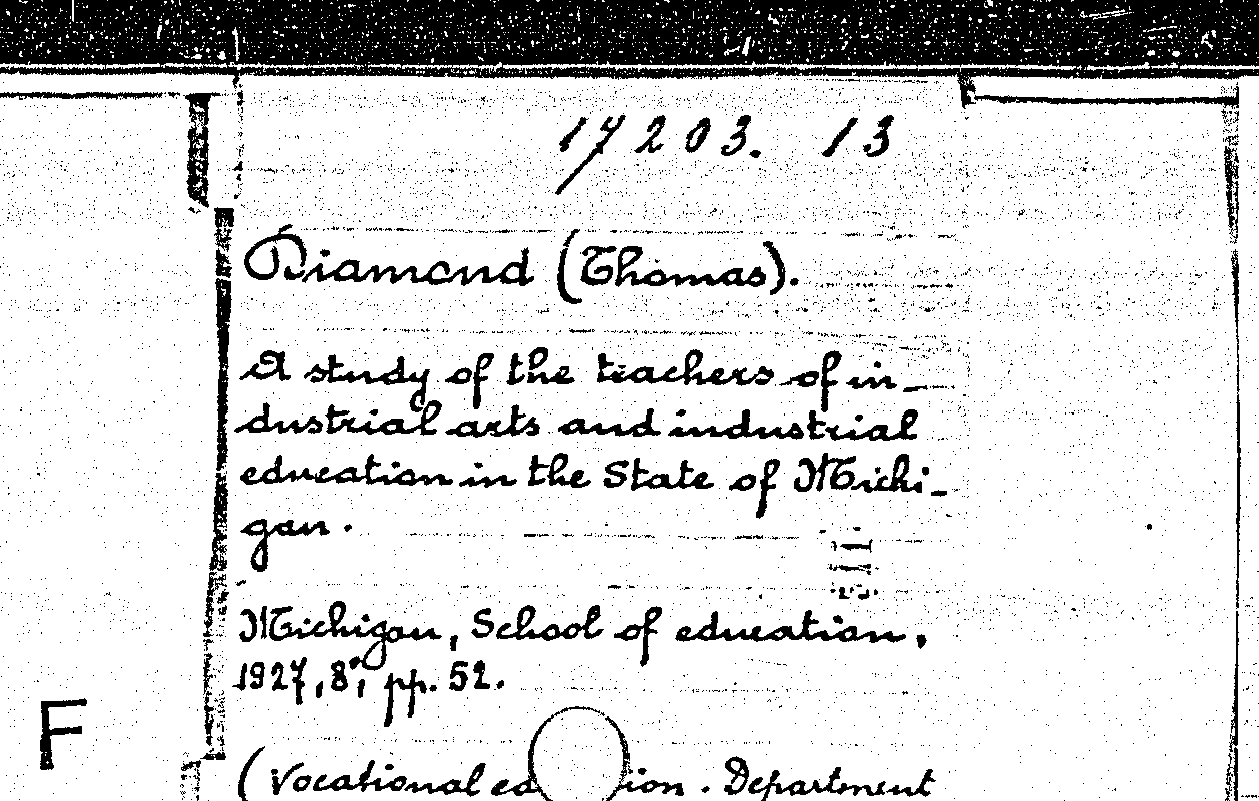 17203. 13
Diamond (Thomas).
A study of the teachers of in-
dustrial arts and industrial
education in the State of Michi-
gan.
Michigan, School of education,
1927, 8°, pp. 52.
F
(Vocational ed ion. Department